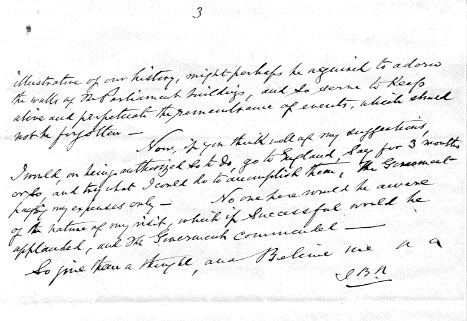 3
illustrative of our history, might perhaps be acquired to adorn
the walls of the Parliament buildings, and so serve to keep
alive and perpetuate the remembrance of events, which should
not be forgotten —
Now, if you think well of my suggestions,
I would, on being authorized so to do, go to England, say for 3 months
or so, and try what I could do to accomplish them, the Government
paying my expenses only —
No one here would be aware
of the nature of my visit, which if successful would be
applauded, and the Government commended —
So give them a thought, and Believe me